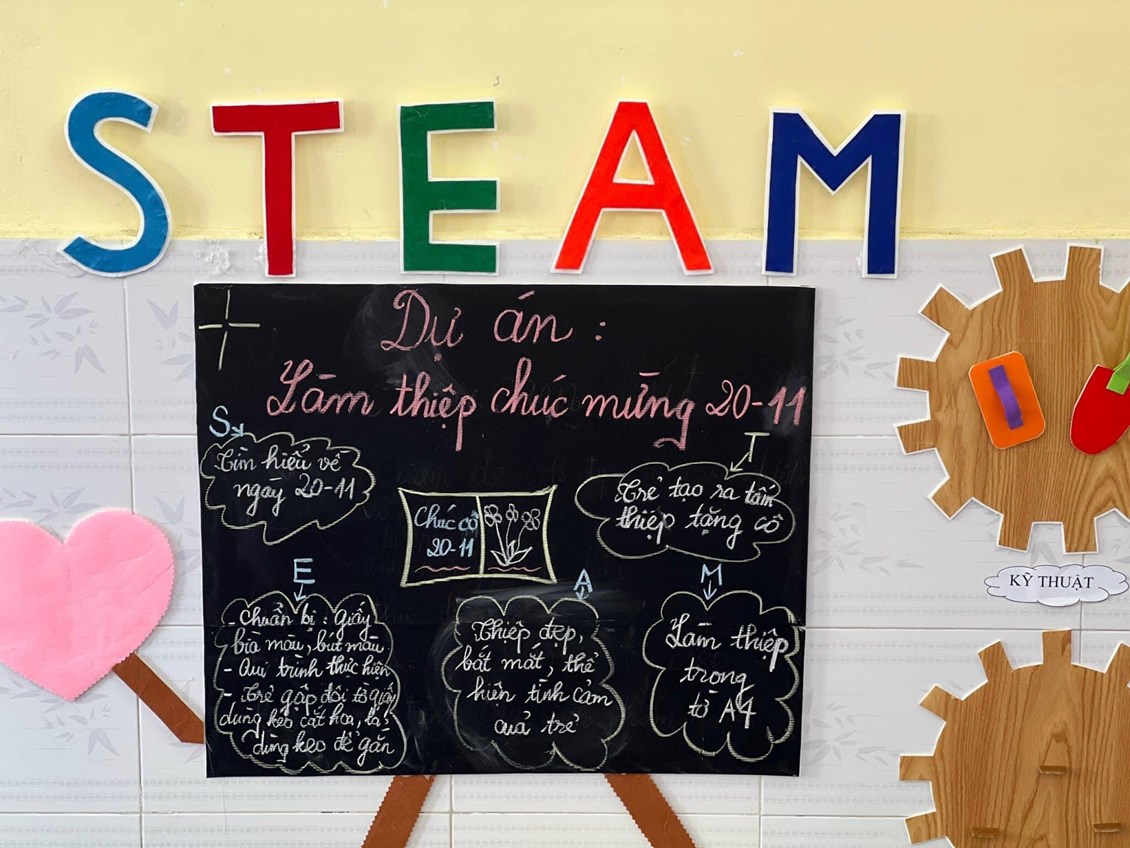 STEAM
Dự án :
Làm thiệp chúc mừng 20-11
S
Tìm hiểu về
ngày 20-11
T
Trẻ tạo ra tấm
thiệp tặng cô
Chúc cô
20-11
E
- Chuẩn bị : Giấy
bìa màu, bút màu
- Qui trình thực hiện
- Trẻ gấp đôi tờ giấy
dùng kéo cắt hoa, lá,
dùng keo để gắn
A
Thiệp đẹp,
bắt mắt, thể
hiện tình cảm
của trẻ
M
Làm thiệp
trong
tờ A4
KỸ THUẬT